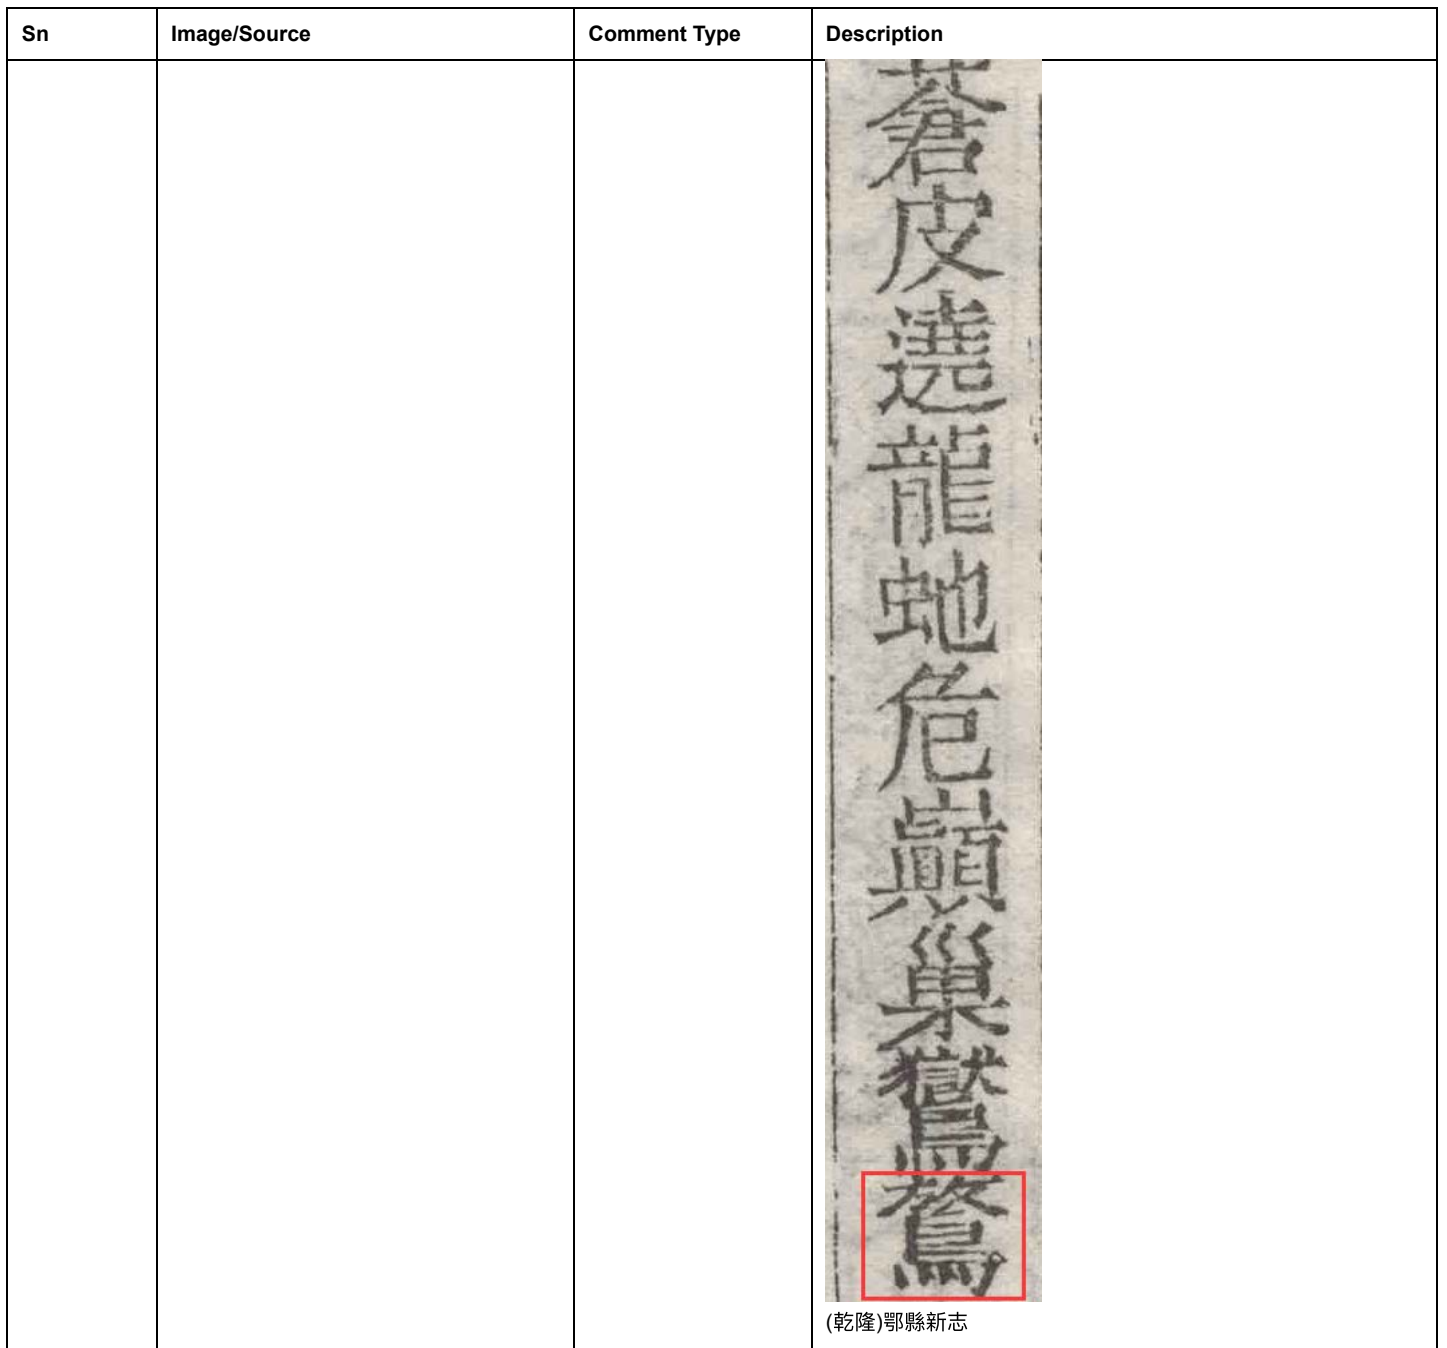 Sn Image/Source Comment Type Description
蒼皮遶龍虵危巔巢鸑
(乾隆)鄠縣新志